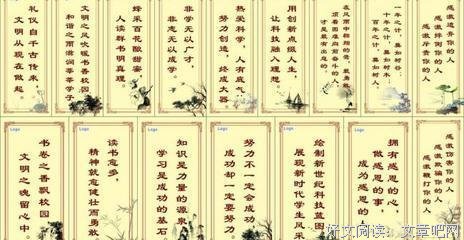 礼仪自千古传来
文明从现在做起
文明之风吹暖书香校园
和谐之雨滋润莘莘学子
蜂采百花酿甜蜜
人读群书明真理。
非学无以广才，
非志无以成学
热爱科学，人有底气，
努力创造，终成大器
用创新点缀人生，
让科技融入理想
一年之计，莫如树谷，
十年之计，莫如树木，
百年之计，莫如树人。
感激斥责你的人
感激绊倒你的人
感激遗弃你的人
Logo
书卷之香飘校园
文明之魂留心中
Logo
读书愈多，
精神就愈健壮而勇敢
Logo
知识是力量的源泉
学习是成功的基石
Logo
努力不一定会成功
成功却一定要努力
Logo
绘制新世纪科技蓝图
展现新时代学生风采
Logo
拥有感恩的心
做感恩的事
成为感恩的人
感激伤害你的人
感激欺骗你的人
感激鞭打你的人
好文阅读：文章吧网